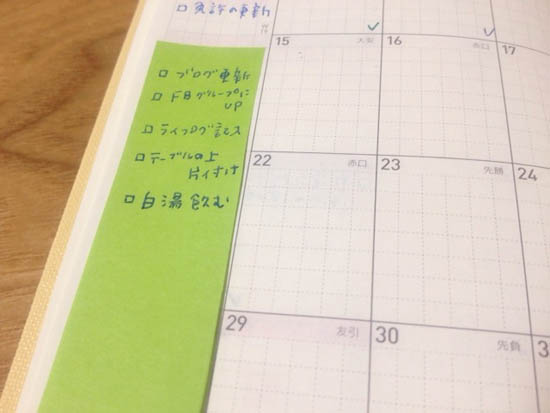 □ 免許の更新
15 大安
16 赤口
17
□ ブログ更新
□ FBグループに
UP
□ ライフログ記入
□ テーブルの上
片付け
□ 白湯飲む
22 赤口
23 先勝
24
29 友引
30 先負